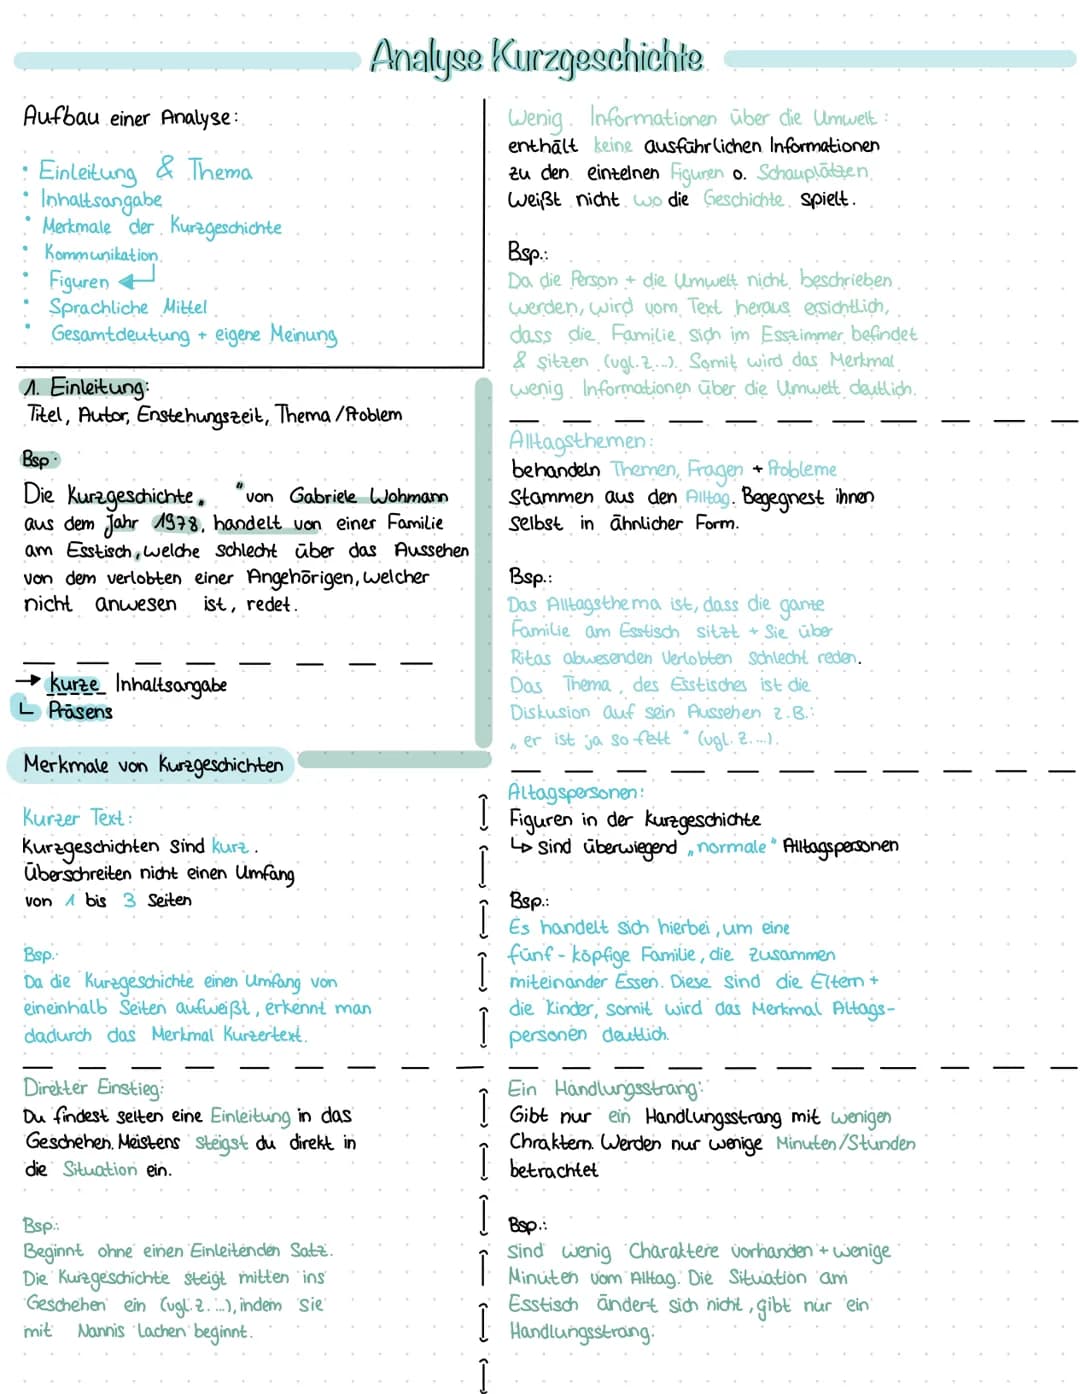 Analyse Kurzgeschichte
Aufbau einer Analyse:
• Einleitung & Thema
• Inhaltsangabe
• Merkmale der Kurzgeschichte
• Kommunikation
• Figuren
• Sprachliche Mittel
• Gesamtdeutung + eigene Meinung
1. Einleitung:
Titel, Autor, Enstehungszeit, Thema/Problem
Bsp.
Die Kurzgeschichte „ “ von Gabriele Wohmann
aus dem Jahr 1978, handelt von einer Familie
am Esstisch, welche schlecht über das Aussehen
von dem verlobten einer Angehörigen, welcher
nicht anwesen ist, redet.
→ kurze Inhaltsangabe
↳ Präsens
Merkmale von Kurzgeschichten
Kurzer Text:
Kurzgeschichten sind kurz.
Überschreiten nicht einen Umfang
von 1 bis 3 Seiten
Bsp.:
Da die Kurzgeschichte einen Umfang von
eineinhalb Seiten aufweißt, erkennt man
dadurch das Merkmal Kurzertext.
Direkter Einstieg:
Du findest selten eine Einleitung in das
Geschehen. Meistens steigst du direkt in
die Situation ein.
Bsp.:
Beginnt ohne einen Einleitenden Satz.
Die Kurzgeschichte steigt mitten ins
Geschehen ein (vgl. Z. ...), indem sie
mit Nannis Lachen beginnt.
Wenig Informationen über die Umwelt:
enthält keine ausführlichen Informationen
zu den einzelnen Figuren o. Schauplätzen
Weißt nicht wo die Geschichte spielt.
Bsp.:
Da die Person + die Umwelt nicht beschrieben
werden, wird vom Text heraus ersichtlich,
dass die Familie sich im Esszimmer befindet
& sitzen (vgl. Z. ...). Somit wird das Merkmal
wenig Informationen über die Umwelt deutlich.
Alltagsthemen:
behandeln Themen, Fragen + Probleme
Stammen aus den Alltag. Begegnest ihnen
selbst in ähnlicher Form.
Bsp.:
Das Alltagsthema ist, dass die ganze
Familie am Esstisch sitzt + Sie über
Ritas abwesenden Verlobten schlecht reden.
Das Thema, des Esstisches ist die
Diskusion auf sein Aussehen z.B.:
„er ist ja so fett“ (vgl. Z. ...).
Altagspersonen:
Figuren in der Kurzgeschichte
↳ sind überwiegend „normale“ Alltagspersonen
Bsp.:
Es handelt sich hierbei, um eine
fünf-köpfige Familie, die zusammen
miteinander Essen. Diese sind die Eltern +
die Kinder, somit wird das Merkmal Altags-
personen deutlich.
Ein Handlungsstrang:
Gibt nur ein Handlungsstrang mit wenigen
Chraktern. Werden nur wenige Minuten/Stunden
betrachtet
Bsp.:
Sind wenig Charaktere vorhanden + wenige
Minuten vom Alltag. Die Situation am
Esstisch ändert sich nicht, gibt nur ein
Handlungsstrang.